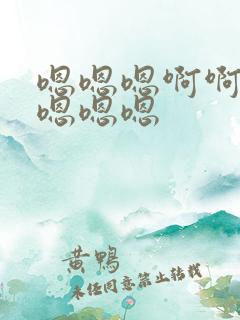 嗯嗯嗯啊啊
嗯嗯嗯
黄鸭
未经同意禁止转载